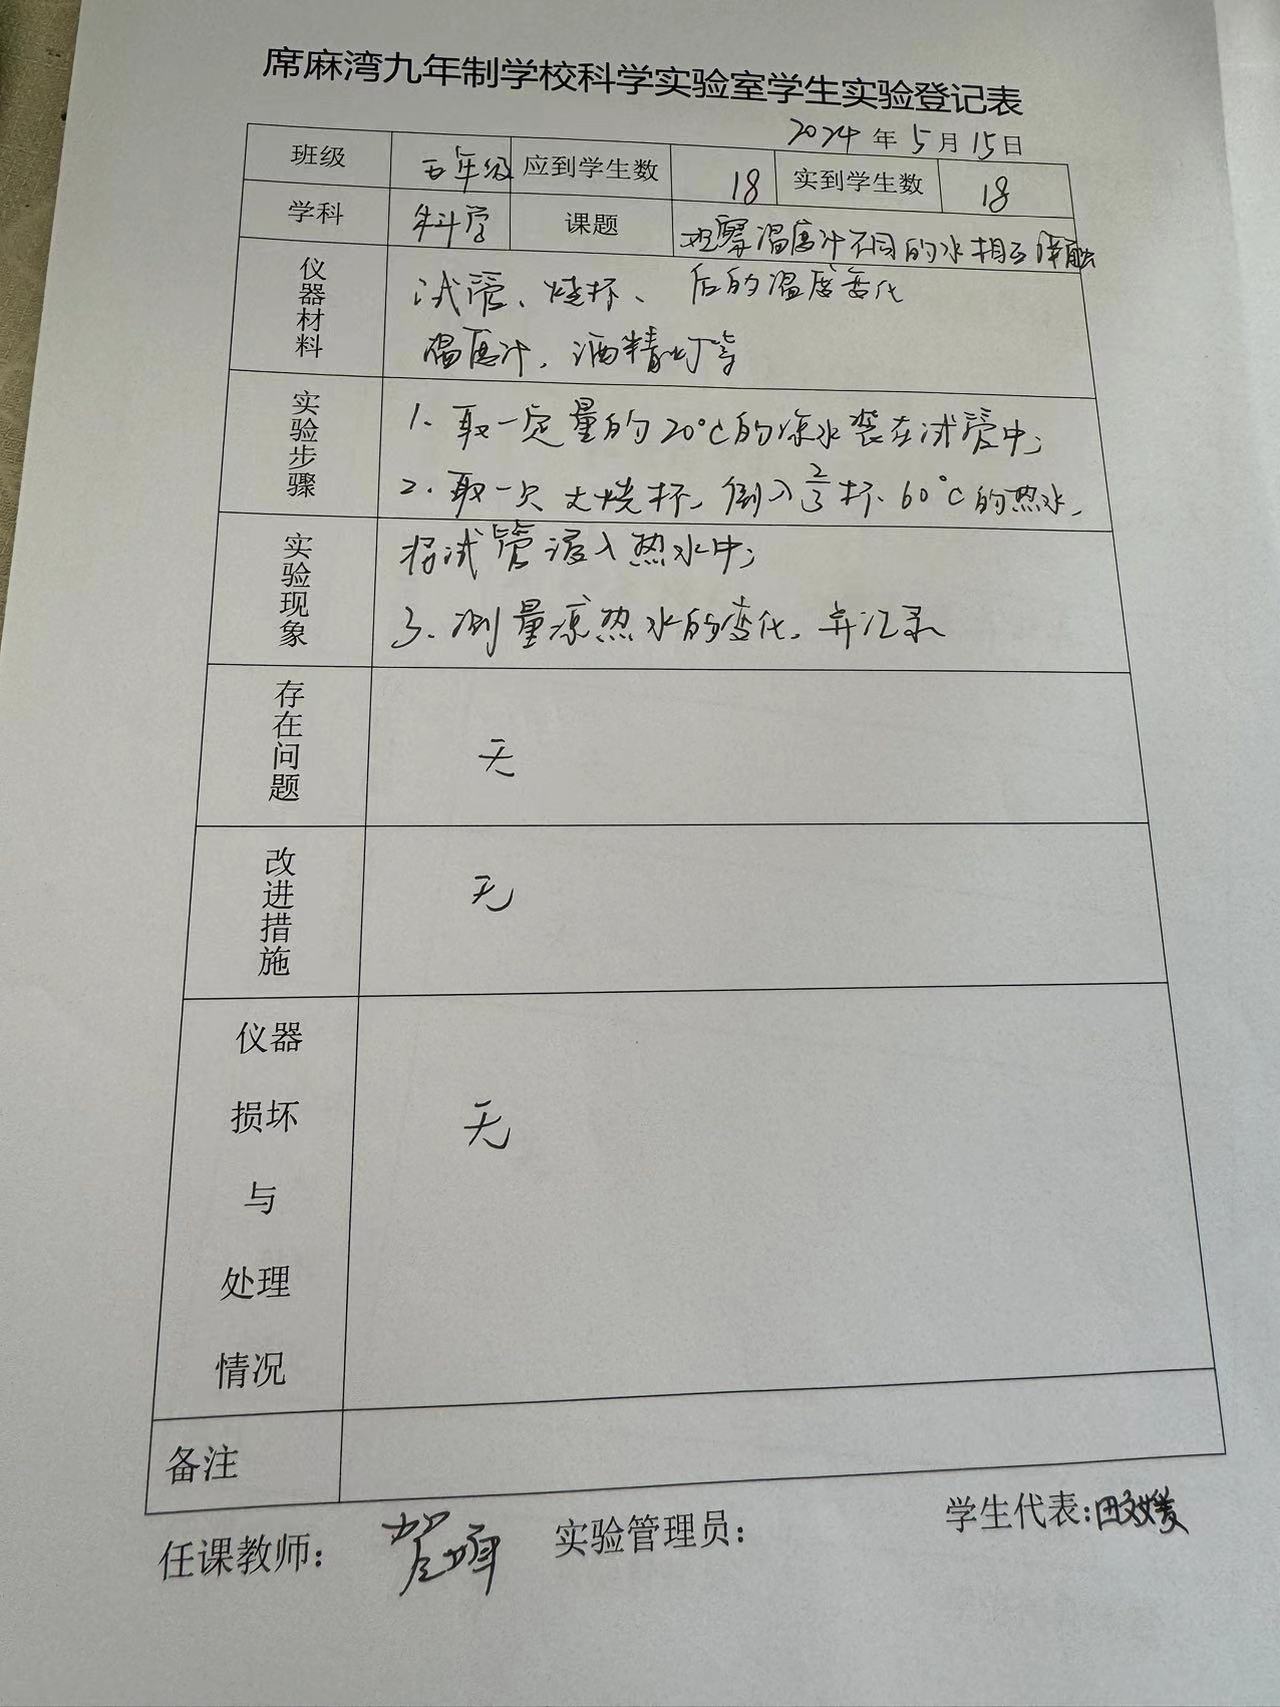 席麻湾九年制学校科学实验室学生实验登记表
2024年5月15日
班级 五年级 应到学生数 18 实到学生数 18
学科 科学 课题 观察温度计不同的水相互接触
后的温度变化
仪器材料 试管、烧杯、
温度计、酒精灯等
实验步骤 1.取一定量的20℃的凉水装在试管中;
2.取一只大烧杯,倒入2/3杯60℃的热水,
实验现象 将试管浸入热水中;
3.测量凉热水的变化,并记录
存在问题 无
改进措施 无
仪器损坏与处理情况 无
备注
任课教师: 实验管理员: 学生代表:田媛